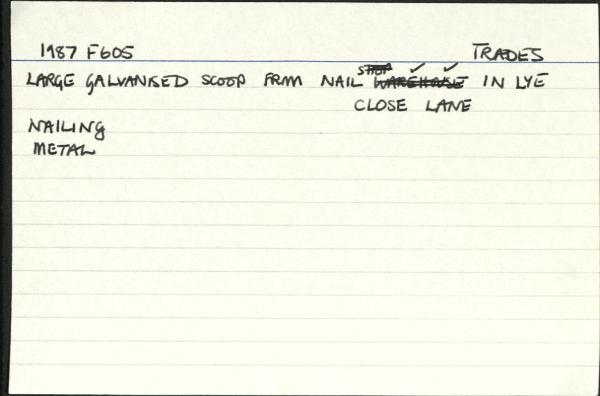 1987 F605 TRADES
LARGE GALVANISED SCOOP FROM NAIL SHOP WAREHOUSE IN LYE
CLOSE LANE
NAILING
METAL